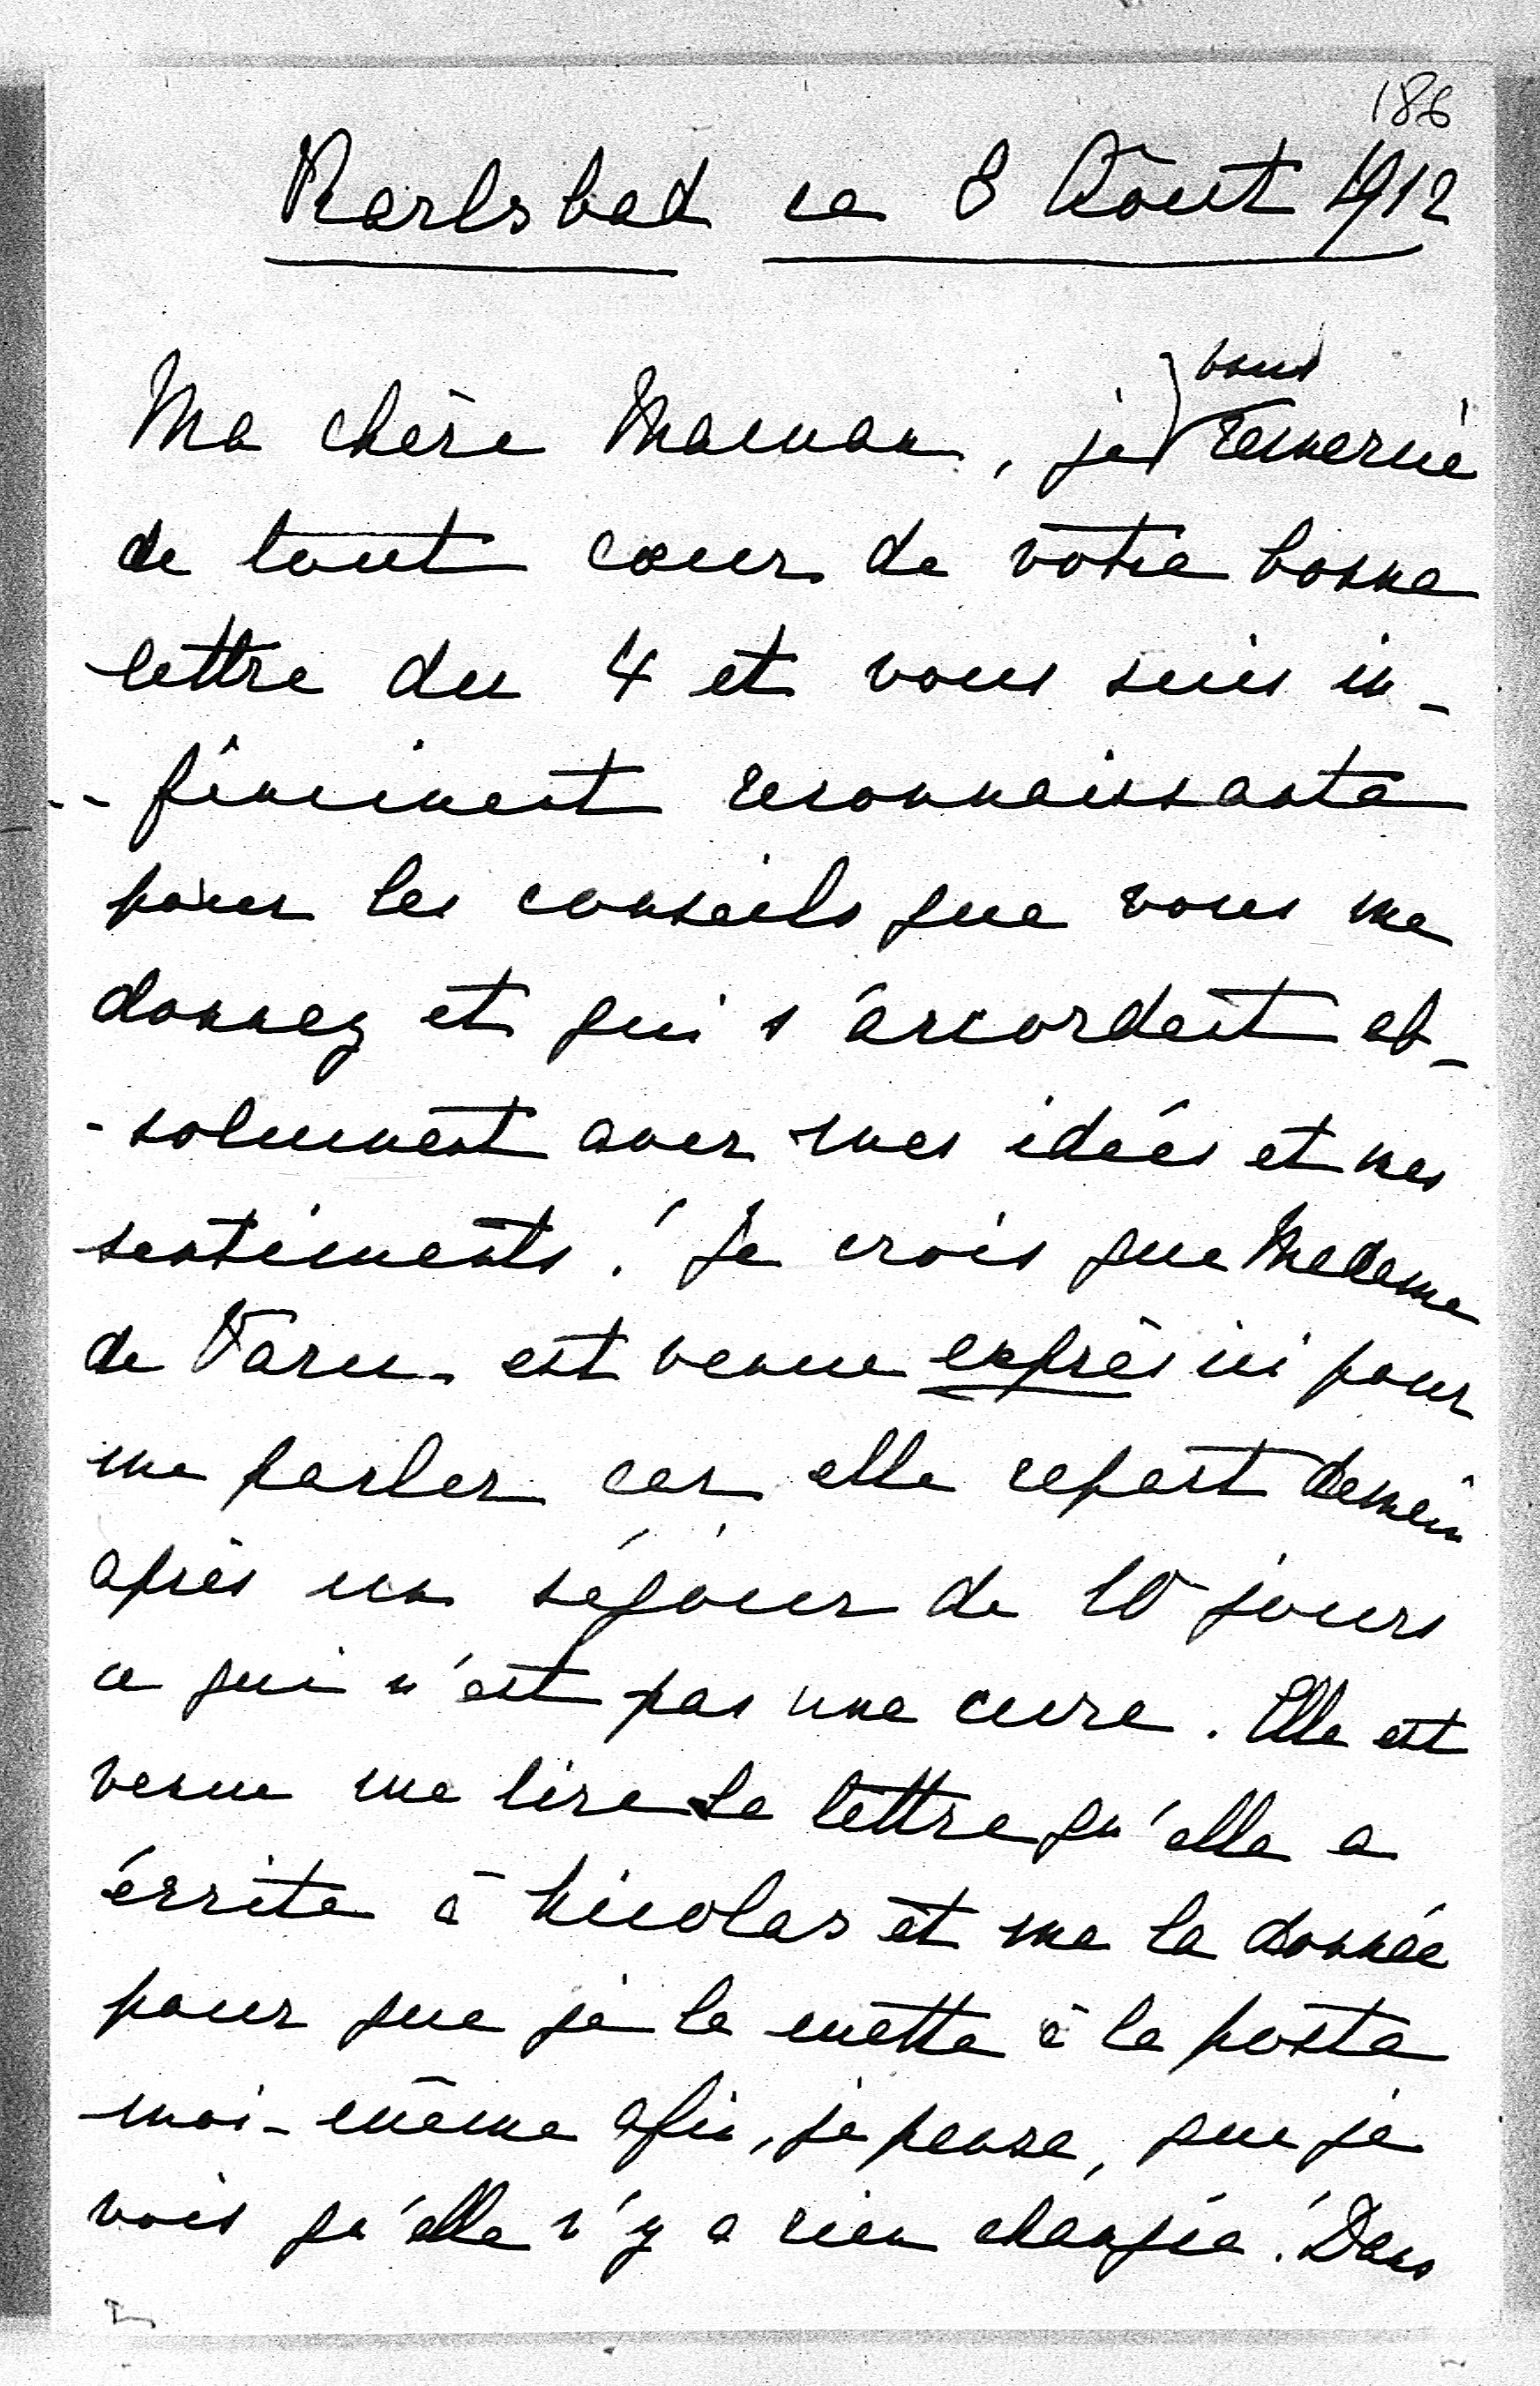 186
Karlsbad ce 8 Août 1912
Ma chère Maman, je vous remercie
de tout cœur de votre bonne
lettre du 4 et vous suis in-
-finiment reconnaissante
pour les conseils que vous me
donnez et qui s'accordent ab-
-solument avec mes idées et mes
sentiments! Je crois que Madame
de est venue exprès ici pour
me parler car elle repart demain
après un séjour de 10 jours
ce qui n'est pas une cure. Elle est
venue me lire la lettre qu'elle a
écrite à Nicolas et me la donnée
pour que je la mette à la poste
moi-même afin, je pense, que je
vois qu'elle n'y a rien changée! Dans